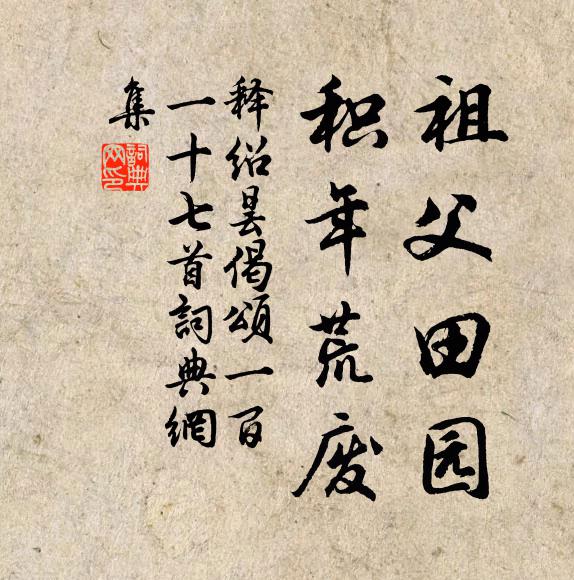 祖父田园
积年荒废
释绍昙偈頌一百
一十七首詞典網
集
詞典
网印